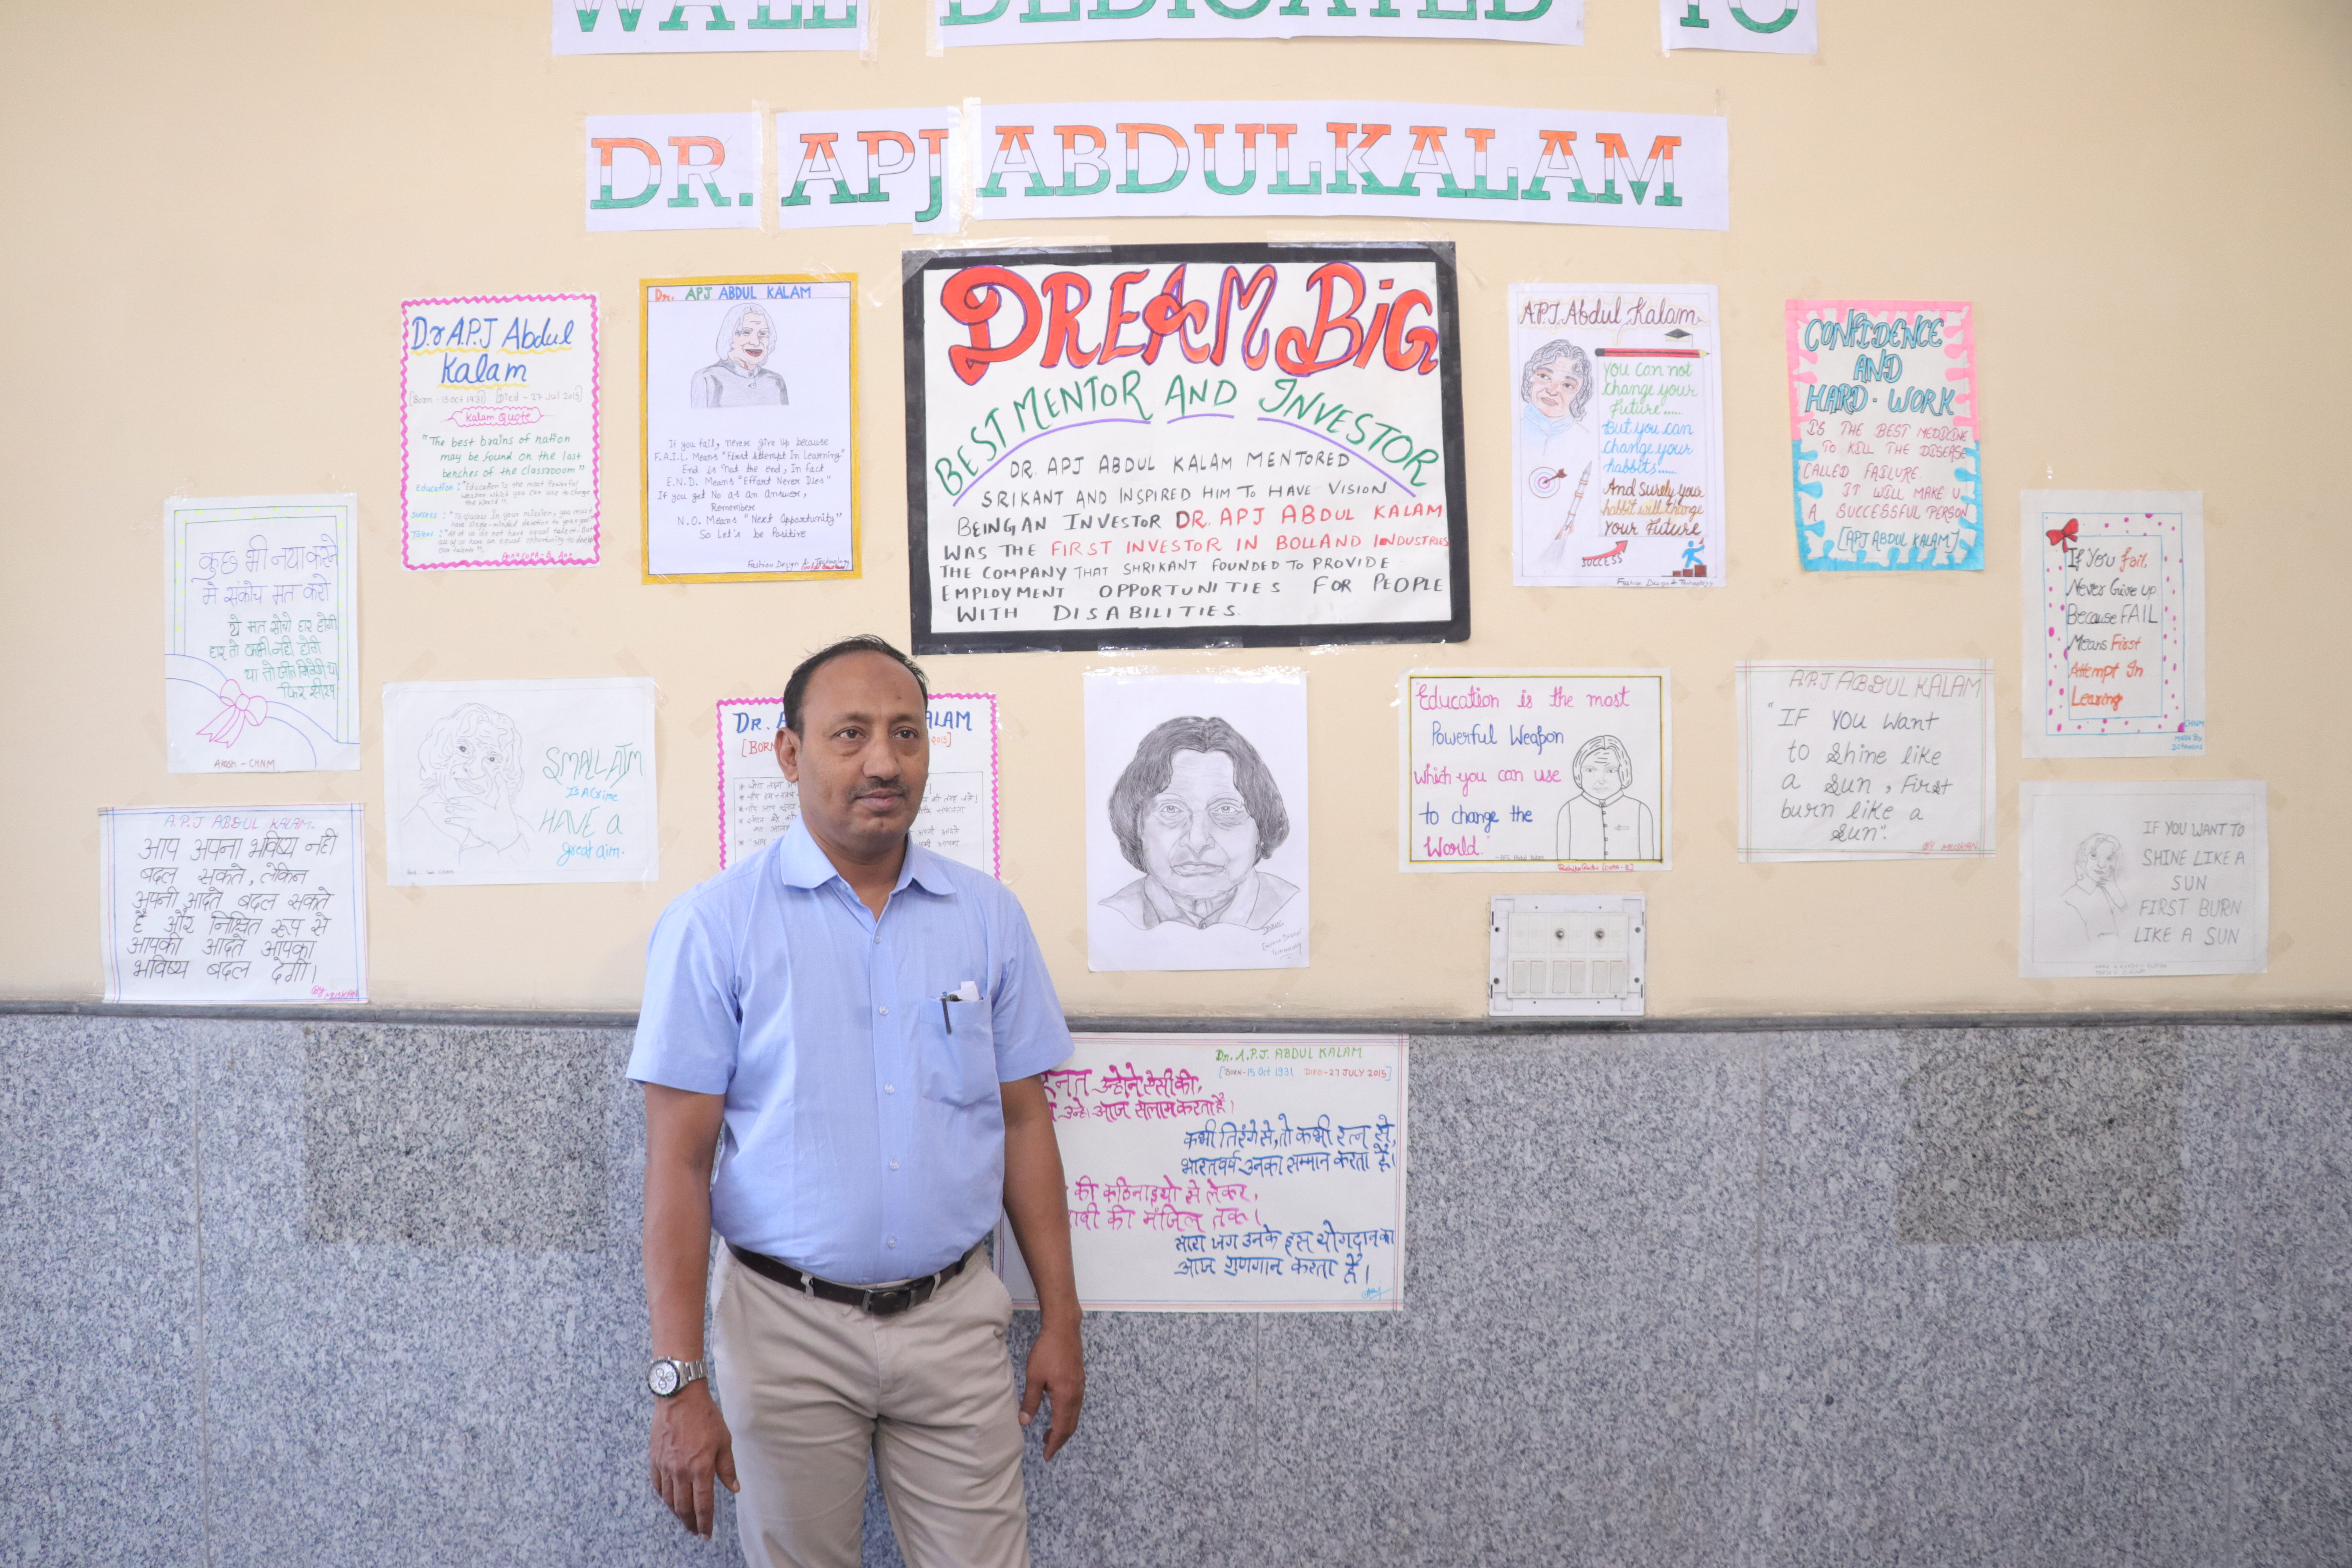 WALL DEDICATED TO
DR. APJ ABDULKALAM
Dr A.P.J Abdul
Kalam
[Born - 15 Oct 1931] [Died - 27 Jul 2015]
Kalam Quote
"The best brains of nation
may be found on the last
benches of the classroom"
Education : "Education is the most Powerful
weapon which you can use to change
the world"
Success : "To success in your mission, you must
have single-minded devotion to your goal"
Dr. APJ ABDUL KALAM
If you fail, never give up because
F.A.I.L. Means "First Attempt In Learning"
End is not the end, In fact
E.N.D. Means "Effort Never Dies"
If you get No as an answer,
Remember
N.O. Means "Next Opportunity"
So Let's be Positive
Fashion Design & Technology
DREAM BIG
BEST MENTOR AND INVESTOR
DR. APJ ABDUL KALAM MENTORED
SRIKANT AND INSPIRED HIM TO HAVE VISION
BEING AN INVESTOR DR. APJ ABDUL KALAM
WAS THE FIRST INVESTOR IN BOLLAND INDUSTRIES
THE COMPANY THAT SHRIKANT FOUNDED TO PROVIDE
EMPLOYMENT OPPORTUNITIES FOR PEOPLE
WITH DISABILITIES.
A.P.J. Abdul Kalam
You can not
change your
future.....
But you can
change your
habbits.....
And surely your
habbit will change
your Future
SUCCESS
Fashion Design & Technology
CONFIDENCE
AND
HARD-WORK
IS THE BEST MEDICINE
TO KILL THE DISEASE
CALLED FAILURE.
IT WILL MAKE U
A SUCCESSFUL PERSON
[APJ ABDUL KALAM]
कुछ भी नया करने
मे संकोच मत करो
ये मत सोचो हार होगी
हार तो कभी नही होगी
या तो जीत मिलेगी या
फिर सीख
Akash - CHNM
If You fail,
Never Give up
Because FAIL
Means First
Attempt In
Learing
CHNM
SMALL AIM
IS A Crime
HAVE a
great aim.
DR. A KALAM
[BORN 2015]
Education is the most
Powerful Weapon
which you can use
to change the
World."
A.P.J ABDUL KALAM
"IF YOU Want
to Shine like
a Sun, First
burn like a
Sun".
BY. MUSKAN
A.P.J ABDUL KALAM.
आप अपना भविष्य नही
बदल सकते, लेकिन
अपनी आदते बदल सकते
है और निश्चित रूप से
आपकी आदते आपका
भविष्य बदल देगी।
By MUSKAN
Fashion Design
Technology
IF YOU WANT TO
SHINE LIKE A
SUN
FIRST BURN
LIKE A SUN
Dr. A.P.J. ABDUL KALAM
[BORN-15 Oct 1931 DIED-27 JULY 2015]
उन्होने ऐसी की,
उन्हे आज सलाम करता है।
कभी तिरंगे से, तो कभी रत्न से,
भारतवर्ष उनका सम्मान करता है।
की कठिनाइयो से लेकर,
की मंजिल तक।
सारा जग उनके इस योगदान का
आज गुणगान करता है।